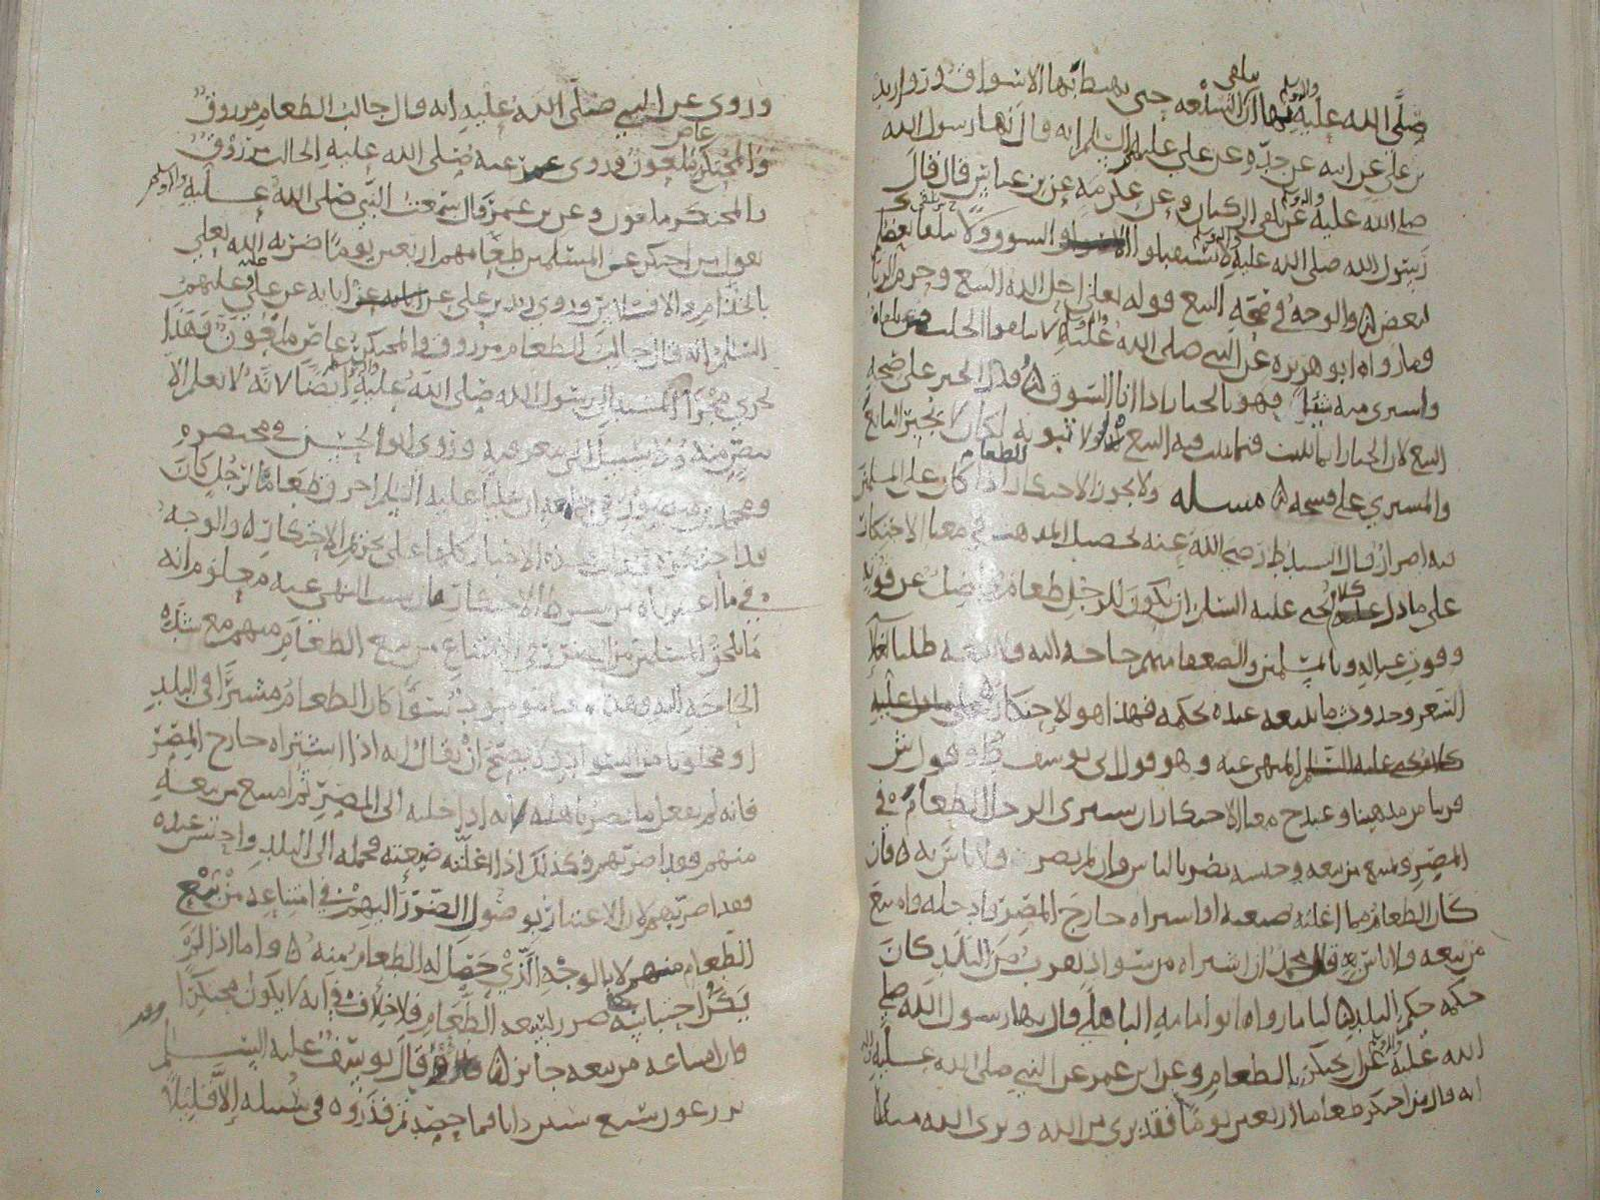 صلى الله عليه وآله وسلم أن يتلقى السلعة حتى يهبط بها الأسواق وروى زيد
بن علي عن أبيه عن جده عن علي عليهم السلم أنه قال نهانا رسول الله
صلى الله عليه وآله وسلم عن تلقي الركبان وعن عكرمة عن بن عباس قال قال
رسول الله صلى الله عليه وآله وسلم لا تستقبلوا السوق ولا يتلقا بعضكم
لبعض والوجه في صحة البيع قوله تعلى أحل الله البيع وحرم الربا
وما رواه أبو هريرة عن النبي صلى الله عليه وآله وسلم لا تلقوا الجلب فمن تلقاه
واشترى منه شيئا فهو بالخيار إذا أتا السوق فدل الخبر على صحة
البيع لأن الخيار إنما يثبت فيما يثبت فيه البيع ولا ثبوته لكان لا يخير البائع
والمشتري على فسحه مسلة ولا يجوز الاحتكار للطعام إذا كان على المسلمين
فيه إضرار قال السيد ط رضي الله عنه تحصيل المذهب في معنا الاحتكار
على ما دل عليه كلام يحيى عليه السلم أن يكون للرجل طعام فاضل عن قوته
وقوت عياله وبالمسلمين والضعفا منهم حاجة إليه فلا يبيعه طلبا لغلا
السعر وحدوث ما يبيعه عنده بحكمه فهذا هو الاحتكار
المنهي عنه وهو قول أبي يوسف وهو قول ش
قريبا من مذهبنا وعند ح معنا الاحتكار أن يشتري الرجل الطعام في
المصر ويمتنع من بيعه وحبسه يضر بالناس وإن لم يضر ولا بأس به فإن
كان الطعام مما أغلته ضيعته أو اشتراه خارج المصر فأدخله وامتنع
من بيعه فلا بأس به قال محمد إن اشتراه من سواد يقرب من البلد كان
حكمه حكم البلد لنا ما رواه أبو أمامة الباهلي قال نها رسول الله صلى
الله عليه وآله وسلم أن يحتكر الطعام وعن ابن عمر عن النبي صلى الله عليه وآله
أنه قال من احتكر طعاما أربعين يوما فقد بري من الله وبرى الله منه
وروي عن النبي صلى الله عليه أنه قال جالب الطعام مرزوق
والمحتكر عاص ملعون وروى عمر عنه صلى الله عليه الجالب مرزوق
والمحتكر ملعون وعن بن عمر قال سمعت النبي صلى الله عليه وآله وسلم
يقول من احتكر على المسلمين طعامهم أربعين يوما ضربه الله تعلى
بالجذام والافلاس وروى زيد بن علي عن آبايه عن علي عليه وعليهم
السلم أنه قال جالب الطعام مرزوق والمحتكر عاص ملعون فهذا
يجري مجرا المسند إلى رسول الله صلى الله عليه وآله وسلم أيضا لأنه لا يعلم إلا
بنص منه ولا سبيل إلى معرفته وروى أبو الحسن في مختصره
ومحمد بن منصور في أن عليا عليه السلم أحرق طعاما لرجل كان
قد احتكره فدلت هذه الأخبار كلها على تحريم الاحتكار والوجه
في ما اعتبرناه من شرط الاحتكار أن سبب النهي عنه معلوم أنه
ما يلحق المسلمين من الضرر في الامتناع من بيع الطعام منهم مع شدة
الحاجة إليه وهذا سوا كان الطعام مشترا في البلد
أو مجلوبا من السواد ولا يصح أن يقال إنه إذا اشتراه خارج المصر
فإنه لم يفعل ما يضر بأهله لأنه إذا حمله إلى المصر ثم امتنع من بيعه
منهم فقد أضر بهم وكذلك إذا أغلته ضيعته فحمله إلى البلد واحتبس عنده
فقد أضر بهم لأن الاعتبار بوصول الضرر إليهم في امتناعه من بيع
الطعام لا بالوجه الذي حصل له الطعام منه وأما إذا لم
يكن احتباسه ضرر لسعة الطعام فلا خلاف في أنه لا يكون محتكرا
وإن امتناعه من بيعه جايز وقد قال يوسف عليه السلم
تزرعون سبع سنين دأبا فما حصدتم فذروه في سنبله إلا قليلا